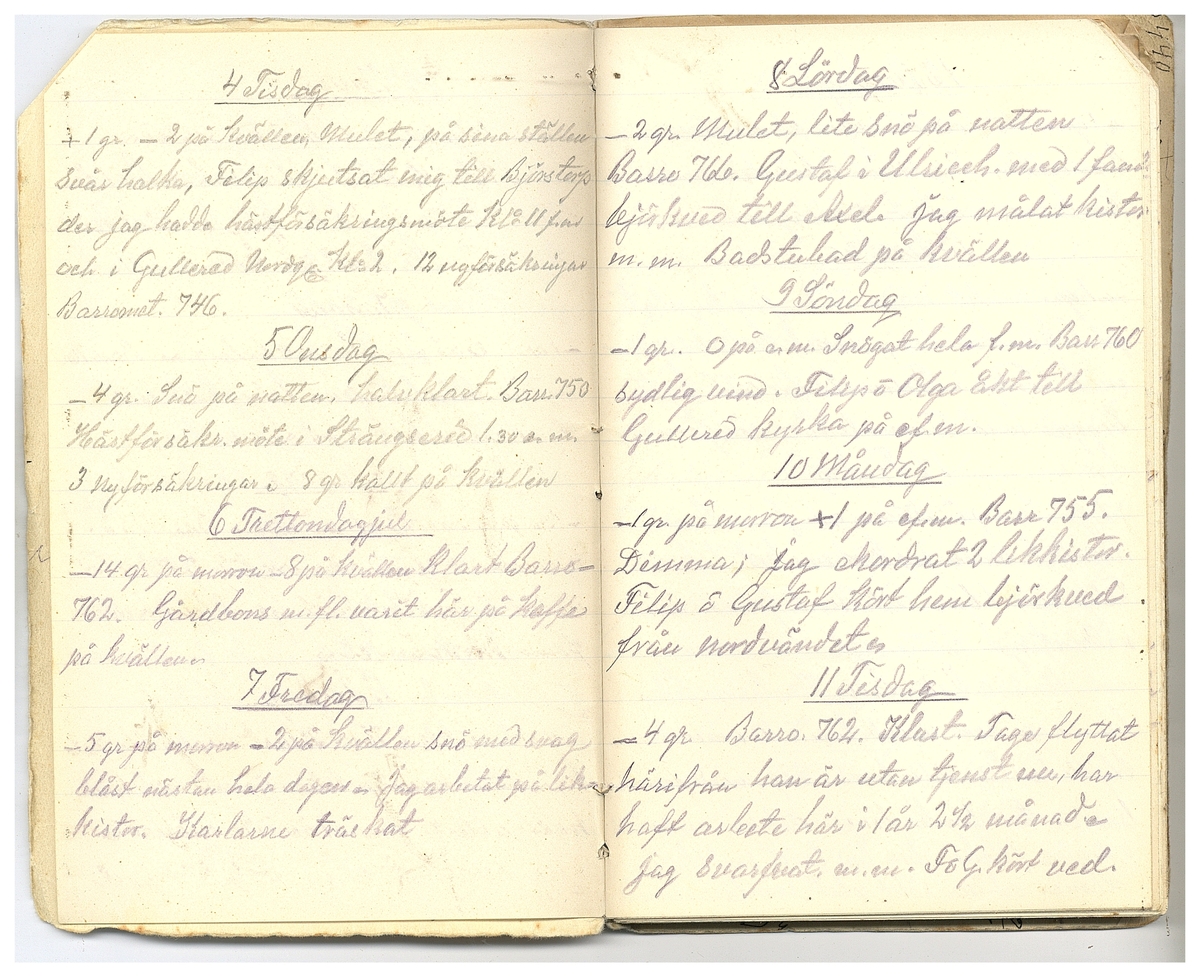 4 Tisdag
+1 gr. – 2 på kvällen, Mulet, på sina ställen
svår halka, Filip skjutsat mig till Björstorp
der jag hadde hästförsäkringsmöte Kl 11 f.m
och i Gullered Nordg. Kl: 2. 12 nyförsäkringar
Barromet. 746.
5 Onsdag
–4 gr. Snö på natten, halvklart. Barr. 750
Hästförsäkr. möte i Strängseröd 1.30 e. m.
3 nyförsäkringar. 8 gr kallt på kvällen
6 Trettondagjul
–14 gr på morron –8 på kvällen Klart Barro–
762. Gårdbons m.fl. varit här på kaffe
på kvällen.
7 Fredag
–5 gr på morron –2 på kvällen snö med svag
blåst nästan hela dagen – jag arbetat på lik-
kistor. Karlarne tröskat
8 Lördag
–2 gr. Mulet, lite snö på natten
Barro 766. Gustaf i Ulriceh. med 1 famn
björkved till Axel. jag målat kistor
m. m. Badstubad på kvällen
9 Söndag
–1 gr. 0 på e.m. Snögat hela f.m. Barr. 760
sydlig vind. Filip o Olga åkt till
Gullered kyrka på ef.m.
10 Måndag
–1 gr. på morron +1 på ef.m. Barr 755.
Dimma; jag ckordrat 2 likkistor.
Filip o Gustaf kört hem björkved
från nordvändet.
11 Tisdag
–4 gr Barro. 762. Klart. Tage flyttat
härifrån han är utan tjenst nu, har
haft arbete här i 1 år 2 1/2 månad.
jag svarfvat. m.m. F o G. kört ved.